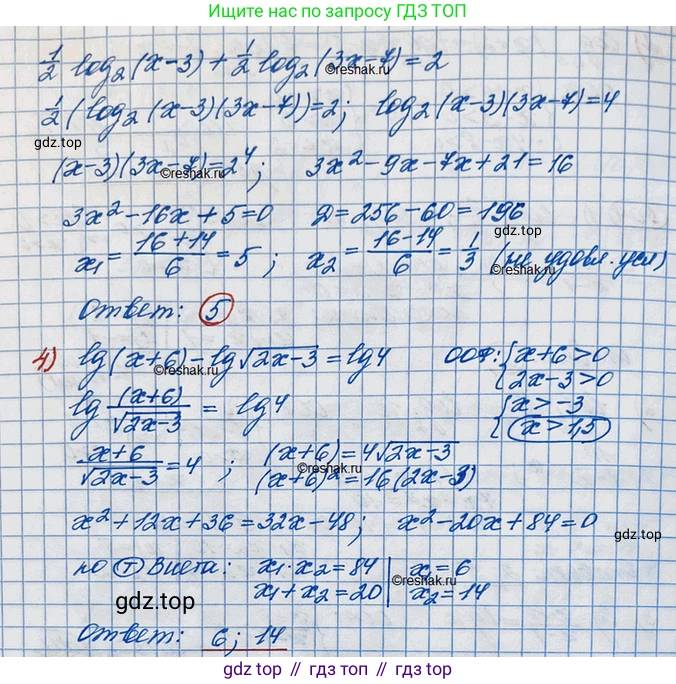 Ищите нас по запросу ГДЗ ТОП
1/2 log₂(x-3) + 1/2 log₂(3x-7) = 2
©reshak.ru
1/2 (log₂(x-3)(3x-7)) = 2; log₂(x-3)(3x-7) = 4
гдз.top
(x-3)(3x-7) = 2⁴; 3x² - 9x - 7x + 21 = 16
©reshak.ru
3x² - 16x + 5 = 0 D = 256 - 60 = 196
гдз.top
x₁ = (16+14)/6 = 5; x₂ = (16-14)/6 = 1/3 (не удовл. усл)
©reshak.ru
Ответ: 5
4) lg(x+6) - lg√(2x-3) = lg4 ООФ: { x+6>0
©reshak.ru
{ 2x-3>0
lg (x+6)/√(2x-3) = lg4 { x>-3
{ x>1,5
(x+6)/√(2x-3) = 4; (x+6) = 4√(2x-3)
©reshak.ru
(x+6)² = 16(2x-3)
x² + 12x + 36 = 32x - 48; x² - 20x + 84 = 0
гдз.top
по Т Виета: x₁·x₂ = 84 | x₁ = 6
©reshak.ru
x₁+x₂ = 20 | x₂ = 14
гдз.top
Ответ: 6; 14
gdz top // гдз топ // гдз.top